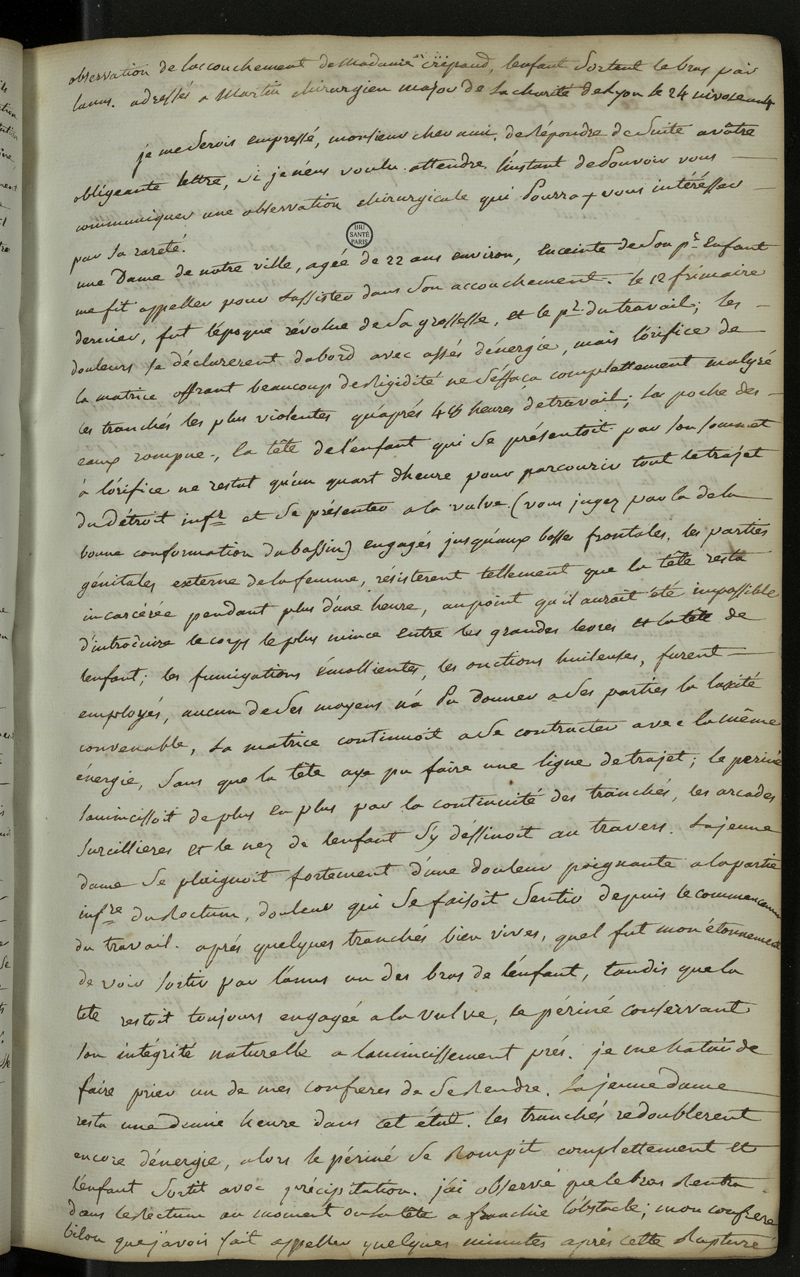 observation de laccouchement de Madame crépaud, lenfant Sortant le bras par
lanus. adressés a Martin chirurgien major de la charité de Lyon le 24 nivose
je me Serois empressé, monsieur cher ami, de répondre de Suite a vôtre
obligeante lettre, Si je n'eus voulu attendre l'instant de Pouvoir vous
communiquer une observation chirurgicale qui Pourra vous intéresser
par Sa rareté.
BIU
SANTÉ
PARIS
une Dame de notre ville, agée de 22 ans environ, Enceinte de Son pr. Enfant
me fit appeller pour Lassister dans Son accouchement. le 12 frimaire
dernier, fut l'époque révolue de Sa grossesse, et le pr. du travail; les
douleurs se déclarerent dabord avec assés dénergie, mais l'orifice de
la matrice offrant beaucoup de Rigidité ne Séffaça complettement malgré
les tranchés les plus violentes qu'aprés 48 heures de travail; la poche des
eaux rompue, la tête de l'enfant qui Se présentoit par Son Sommet
à l'orifice ne restat qu'un quart dheure pour parcourir tout le trajet
du Détroit infr. et Se présenter a la vulve (vous jugez par la de la
bonne conformation du bassin) engagés jusqu'aux bosse frontales, les parties
génitales externe de la femme, résisterent tellement que la tête resta
incarcérée pendant plus d'une heure, au point qu'il aurait été impossible
d'introduire le corps le plus mince entre les grandes levres et la tête de
lenfant; les fumigations émollientes, les onctions huileuses, furent
employés, aucun de Ses moyens n'a Pu donner a Ses parties la laxité
convenable, La matrice continuoit a Se contracter avec la même
énergie, Sans que la tête aye pu faire une ligne de trajet; le periné
Samincissoit de plus en plus par la continuité des tranchés, les arcades
Surcillieres et le nez de lenfant S'y déssinoit au travers. La jeune
dame Se plaignoit fortement d'une douleur poignante a la partie
infre du Rectum, douleur qui Se faisoit Sentir depuis le commencement
du travail. aprés quelques tranchés bien vives, quel fut mon étonnement
de voir Sortir par l'anus un des bras de l'enfant, tandis que la
tête restoit toujours engagée a la vulve, le périné conservant
Son intégrité naturelle a lamincissement prés. je me hatai de
faire prier un de mes confreres de Se Rendre. La jeune dame
resta une demie heure dans cet état. les tranchés redoublerent
encore dénergie, alors le périné Se Rompit complettement et
l'enfant Sortit avec précipitation. j'ai observé que le bras Rentra
dans le Rectum au moment ou la tête a franchie l'obstacle; mon confrere
bilon que j'avois fait appeller quelques minutes aprés cette Rupture